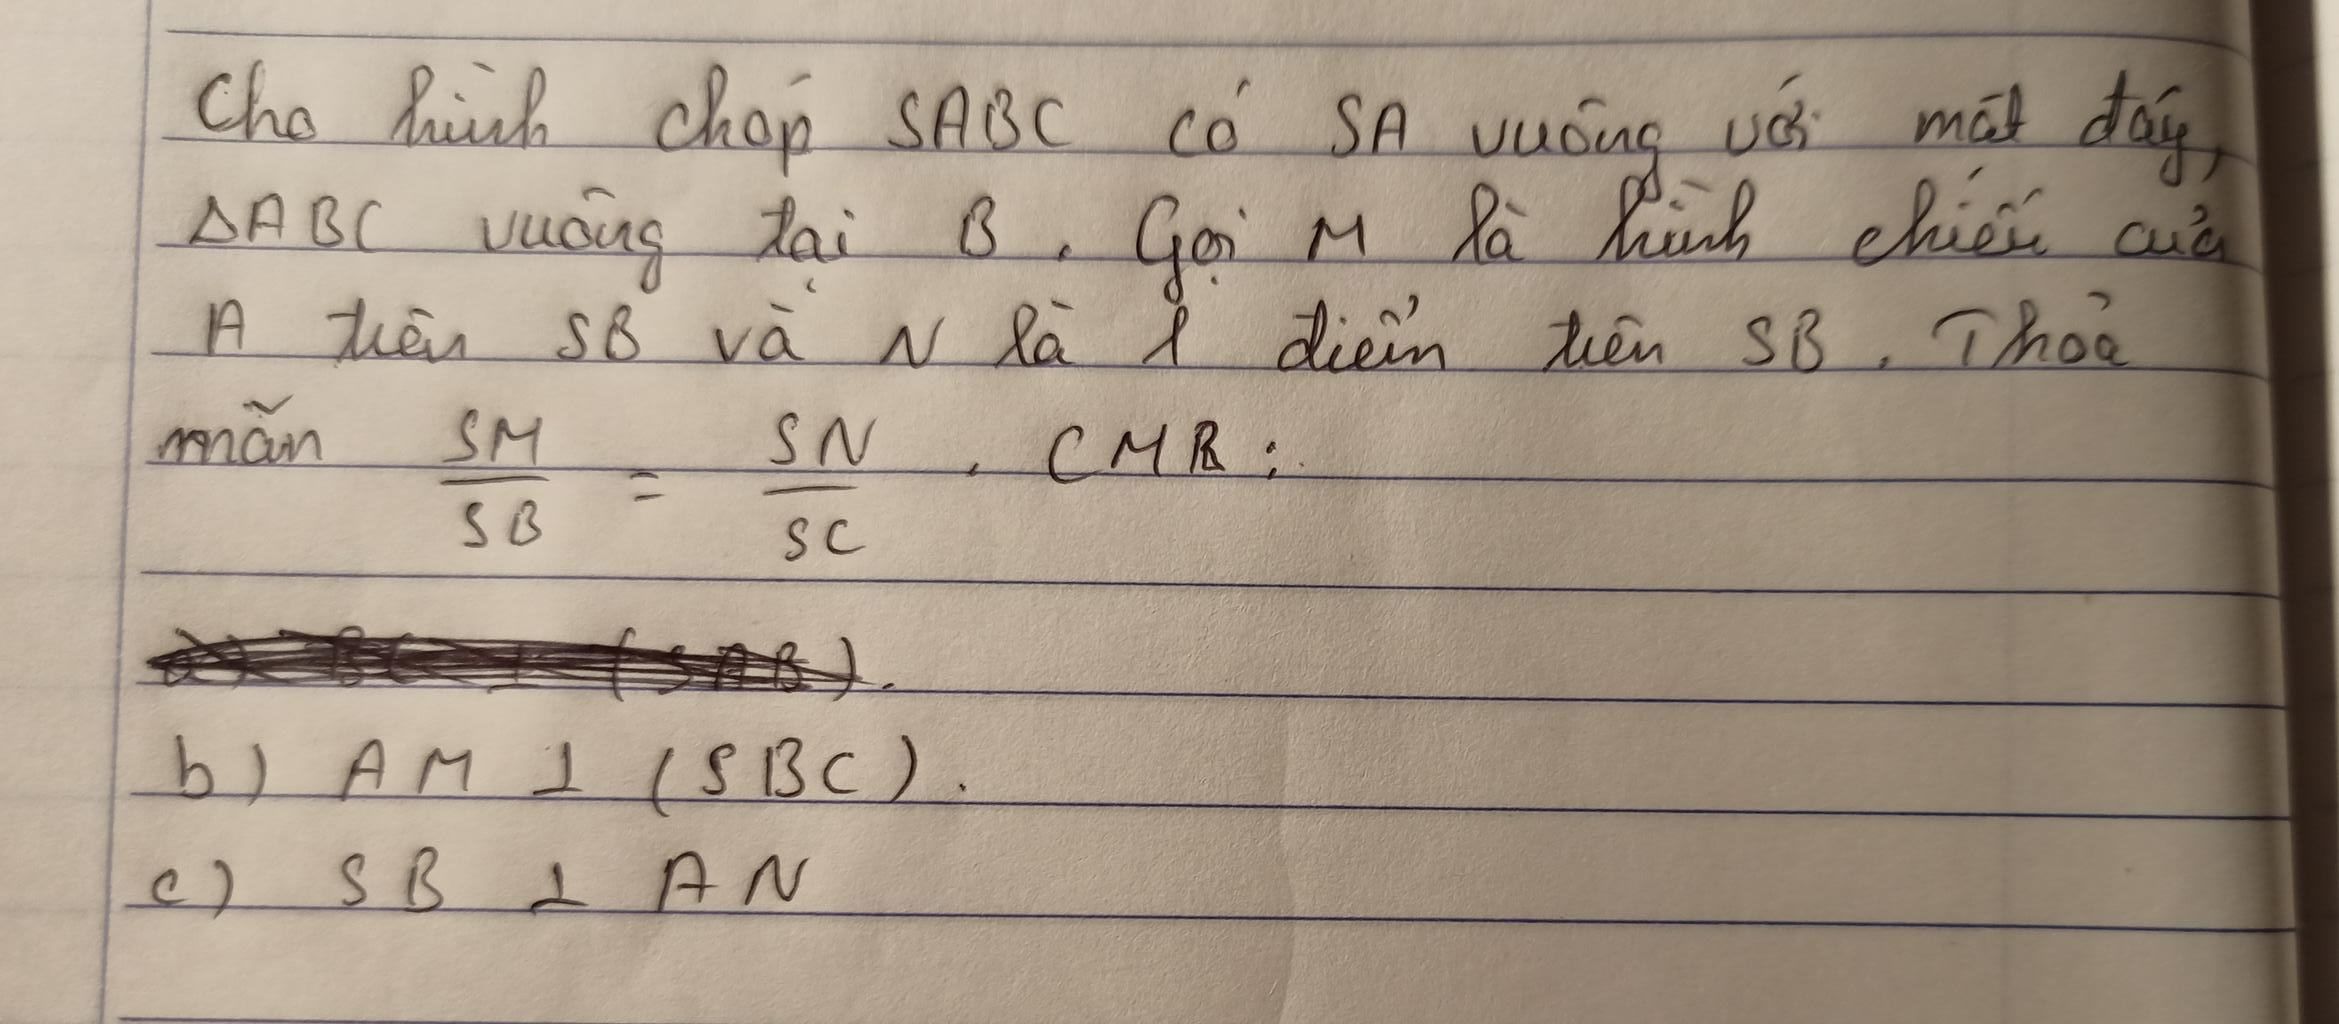 Cho hình chóp SABC có SA vuông với mặt đáy,
ΔABC vuông tại B. Gọi M là hình chiếu của
A trên SB và N là 1 điểm trên SB. Thoả
mãn SM/SB = SN/SC. CMR:
a) BC ⊥ (SAB).
b) AM ⊥ (SBC).
c) SB ⊥ AN